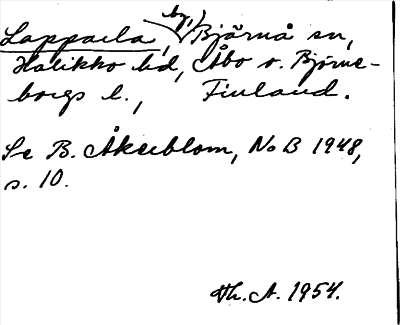 Lappaila, by, Bjärnå sn,
Halikko hd, Åbo o. Björne-
borgs l., Finland.
Se B. Åkerblom, NoB 1948,
s. 10.
Th. A. 1954.